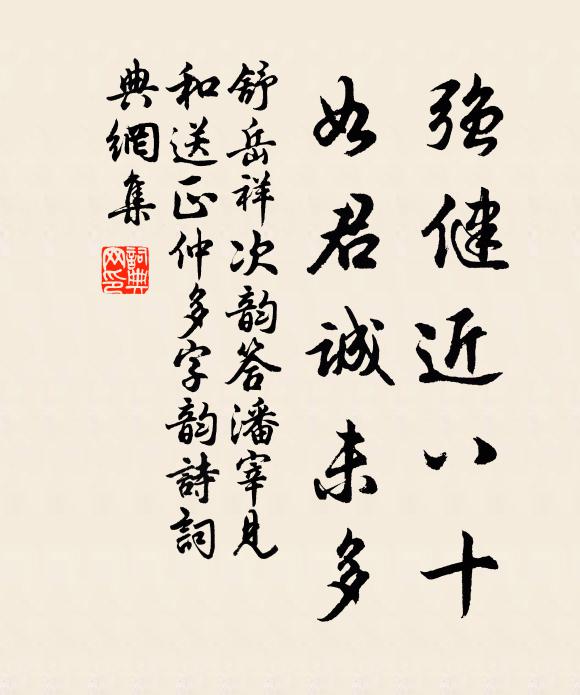 强健近八十
如君誠未多
舒岳祥次韵答潘宰見
和送正仲多字韵詩詞
典網集
詞典
网印